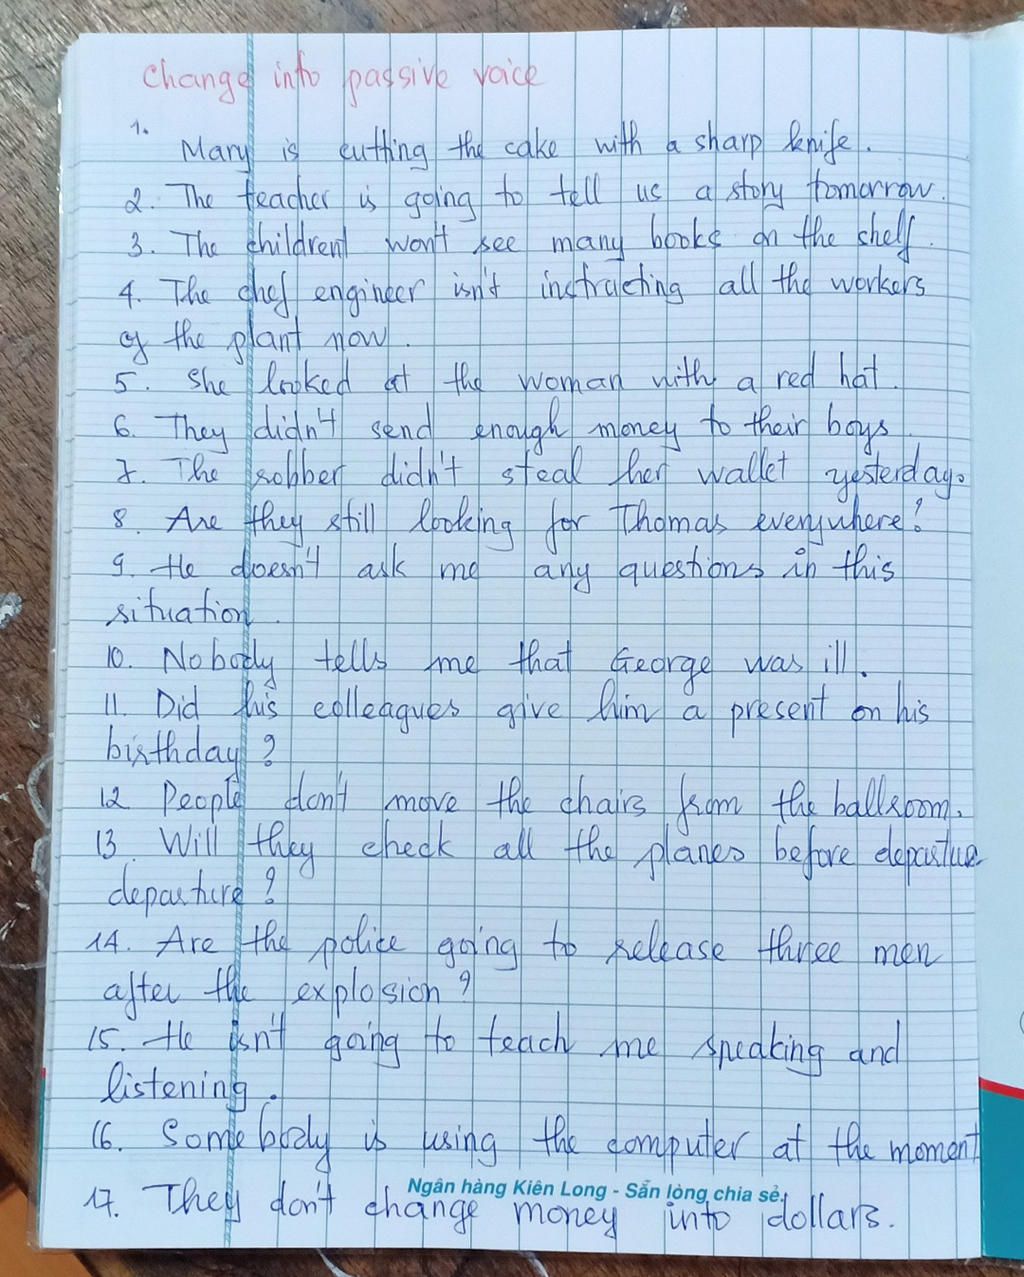 Change into passive voice
1.
Mary is cutting the cake with a sharp knife.
2. The teacher is going to tell us a story tomorrow.
3. The children won't see many books on the shelf.
4. The chef engineer isn't instructing all the workers
of the plant now.
5. She looked at the woman with a red hat.
6. They didn't send enough money to their boys.
7. The robber didn't steal her wallet yesterday.
8. Are they still looking for Thomas everywhere?
9. He doesn't ask me any questions in this
situation.
10. Nobody tells me that George was ill.
11. Did his colleagues give him a present on his
birthday?
12 People don't move the chairs from the ballroom.
13. Will they check all the planes before departure
departure?
14. Are the police going to release three men
after the explosion?
15. He isn't going to teach me speaking and
listening.
16. Somebody is using the computer at the moment
Ngân hàng Kiên Long - Sẵn lòng chia sẻ!
17. They don't change money into dollars.